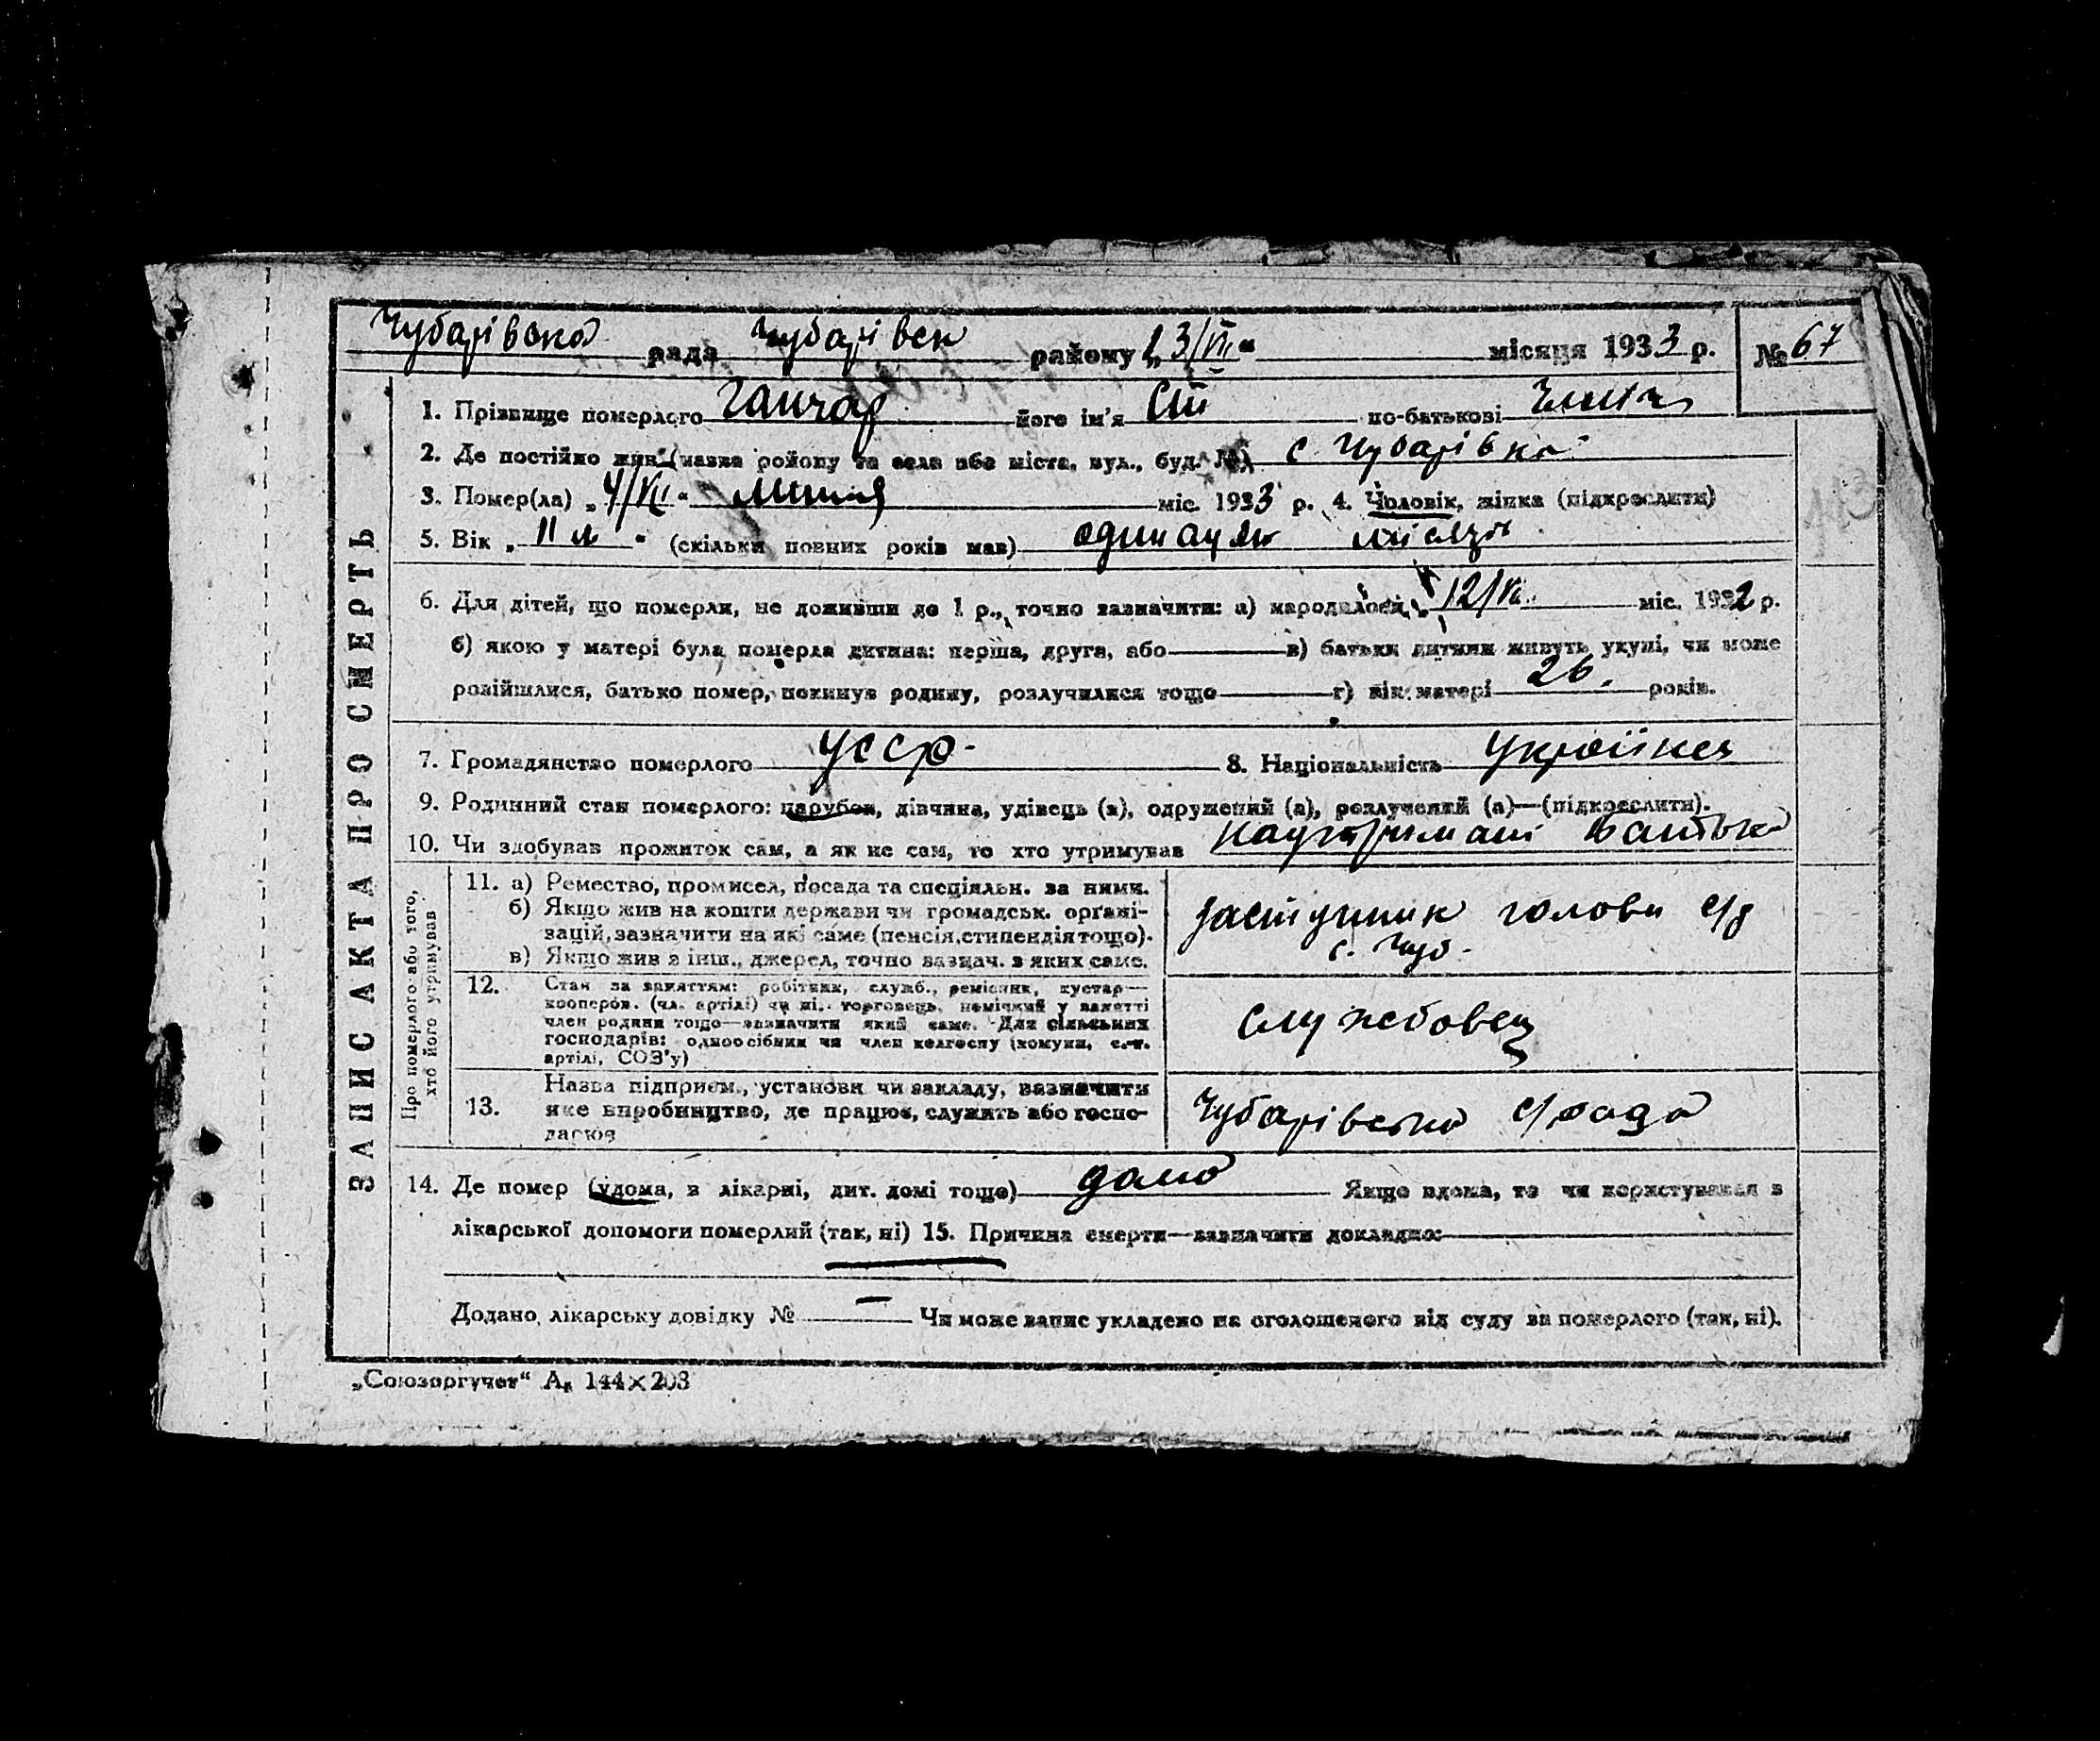 Чубарівска рада Чубарівск району „ 3/VII “ місяця 1933 р. № 67
1. Прізвище померлого Ганчар його ім'я по-батькові
2. Де постійно жив (назва району та села або міста, вул., буд. №) с. Чубарівка
3. Помер(ла) „ 4/VII “ липня міс. 1933 р. 4. Чоловік, жінка (підкреслити)
5. Вік „ 11 м “ (скільки повних років мав) одинацять місяців
6. Для дітей, що померли, не доживши до 1 р., точно зазначити: а) народилося „ 12/VII міс. 1932 р.
б) якою у матері була померла дитина: перша, друга, або в) батьки дитини живуть укупі, чи може
розійшлися, батько помер, покинув родину, розлучилися тощо г) вік матері 26. років.
7. Громадянство померлого УССР 8. Національність Українец
9. Родинний стан померлого: парубок, дівчина, удівець (а), одружений (а), розлучений (а)—(підкреслити).
10. Чи здобував прожиток сам, а як не сам, то хто утримував наутримані батька
ЗАПИС АКТА ПРО СМЕРТЬ
Про померлого або того,
хто його утримував
11. а) Ремество, промисел, посада та спеціяльн. за ними.
б) Якщо жив на кошти держави чи громадськ. органі-
зацій, зазначити на які саме (пенсія, стипендія тощо).
в) Якщо жив з інш., джерел, точно зазнач. з яких саме.
заступник голови с/р
с. Чуб.
12. Стан за заняттям: робітник, служб., ремісник, кустар—
кооперов. (чл. артілі) чи ні. торговець, помічний у занятті
член родини тощо—зазначити який саме. Для сільських
господарів: одноосібник чи член колгоспу (комуни, с.-г.
артілі, СОЗ'у)
службовец
13. Назва підприєм., установи чи закладу, зазначити
яке виробництво, де працює, служить або госпо-
дарює
Чубарівська с/рада
14. Де помер (удома, в лікарні, дит. домі тощо) дома Якщо вдома, то чи користувався з
лікарської допомоги померлий (так, ні) 15. Причина смерти—зазначити докладно:
Додано лікарську довідку № — Чи може запис укладено на оголошеного від суду за померлого (так, ні).
„Союзоргучет“ А₅ 144×203